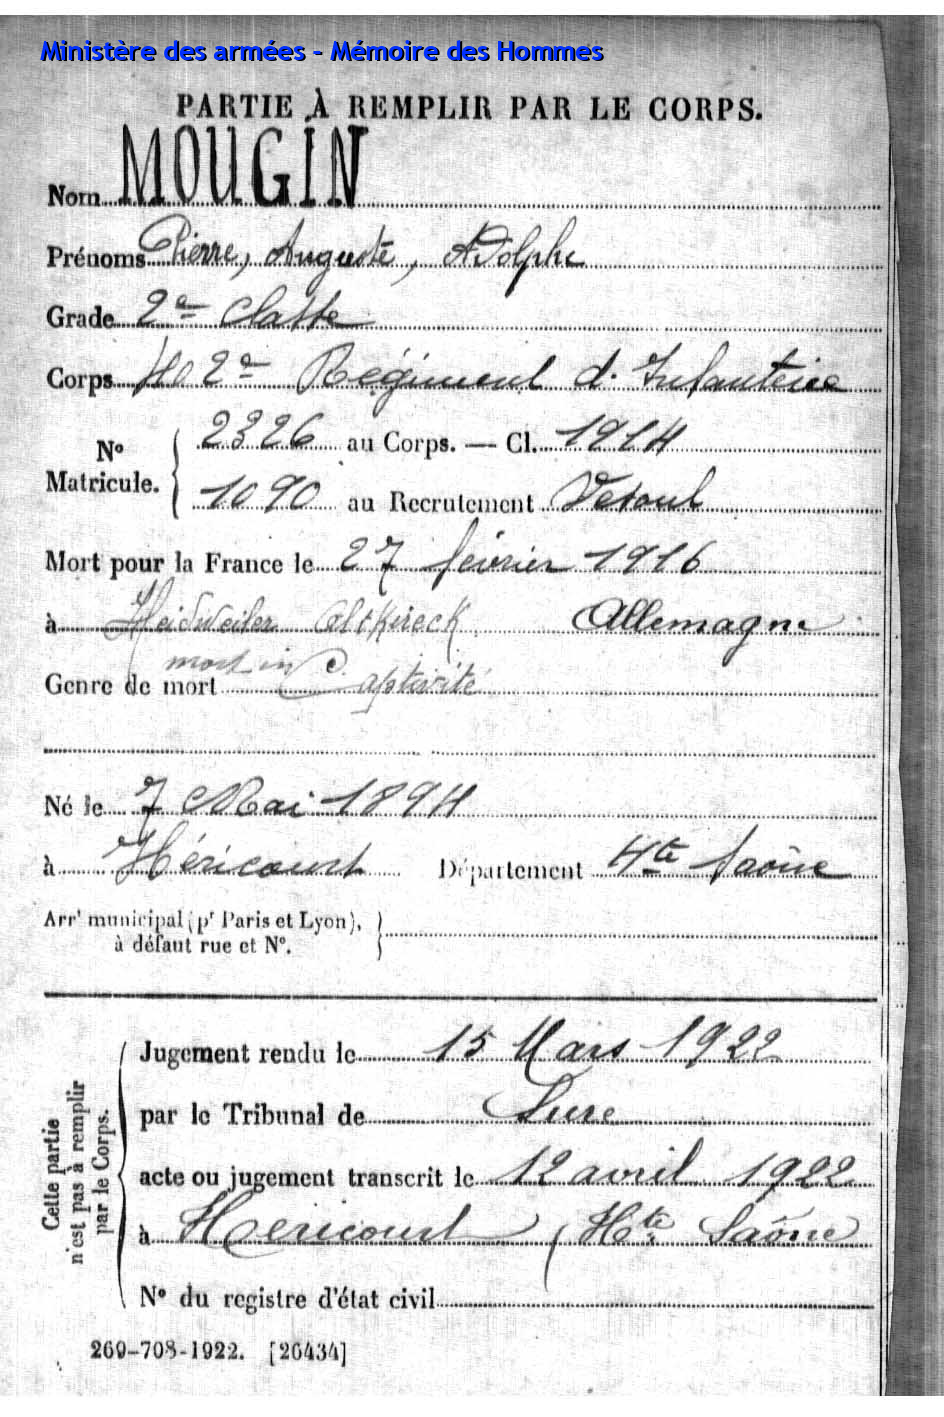 Ministère des armées - Mémoire des Hommes
PARTIE À REMPLIR PAR LE CORPS.
Nom MOUGIN
Prénoms Pierre, Auguste, Adolphe
Grade 2e Classe
Corps 402e Régiment d'Infanterie
No Matricule. { 2326 au Corps. — Cl. 1914
1090 au Recrutement Vesoul
Mort pour la France le 27 février 1916
à Heidweiler Altkirck Allemagne
mort in
Genre de mort Captivité
Né le 7 Mai 1894
à Héricourt Département Hte Saône
Arrt municipal (pr Paris et Lyon),
à défaut rue et No. }
Cette partie
n'est pas à remplir
par le Corps.
Jugement rendu le 15 Mars 1922
par le Tribunal de Lure
acte ou jugement transcrit le 12 avril 1922
à Héricourt (Hte Saône
No du registre d'état civil
269-708-1922. [26434]